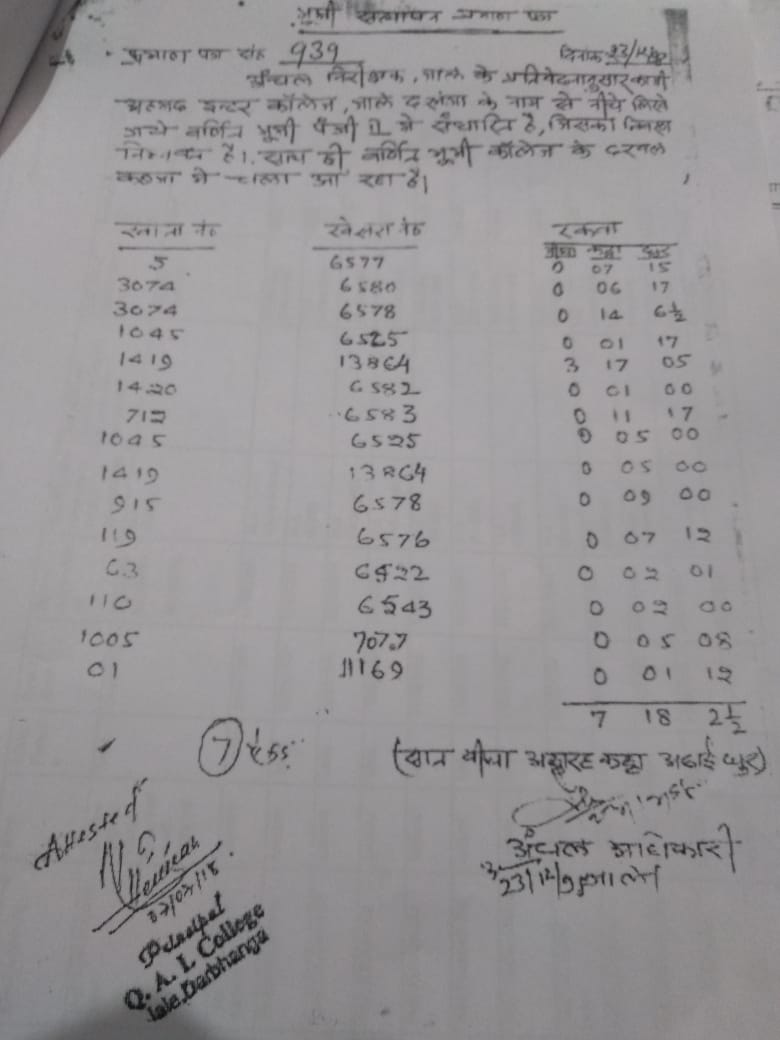 भूमी सत्यापन प्रमाण पत्र
प्रमाण पत्र सं० 939 दिनांक 23/12/
अंचल निरीक्षक, जाले के प्रतिवेदनानुसार काजी
अहमद इन्टर कॉलेज, जाले दरभंगा के नाम से नीचे लिखे
गये वर्णित भूमी पँजी II मे संधारित है, जिसका विवरण
निम्नवत है। साथ ही वर्णित भूमी कॉलेज के दखल
कब्जा मे चला आ रहा है।
खाता नं० खेसरा नं० रकवा
बीघा कठ्ठा धुर
5 6577 0 07 15
3074 6580 0 06 17
3074 6578 0 14 6½
1045 6525 0 01 17
1419 13864 3 17 05
1420 6582 0 01 00
712 6583 0 11 17
1045 6525 0 05 00
1419 13864 0 05 00
915 6578 0 09 00
119 6576 0 07 12
63 6522 0 02 01
110 6543 0 02 00
1005 7077 0 05 08
01 11169 0 01 12
7 18 2½
7
(सात बीघा अठ्ठारह कठ्ठा अढाई धुर)
अंचल अधिकारी
23/12/ जाले
Attested
07/07/15
Principal
Q. A. I. College
Jale, Darbhanga